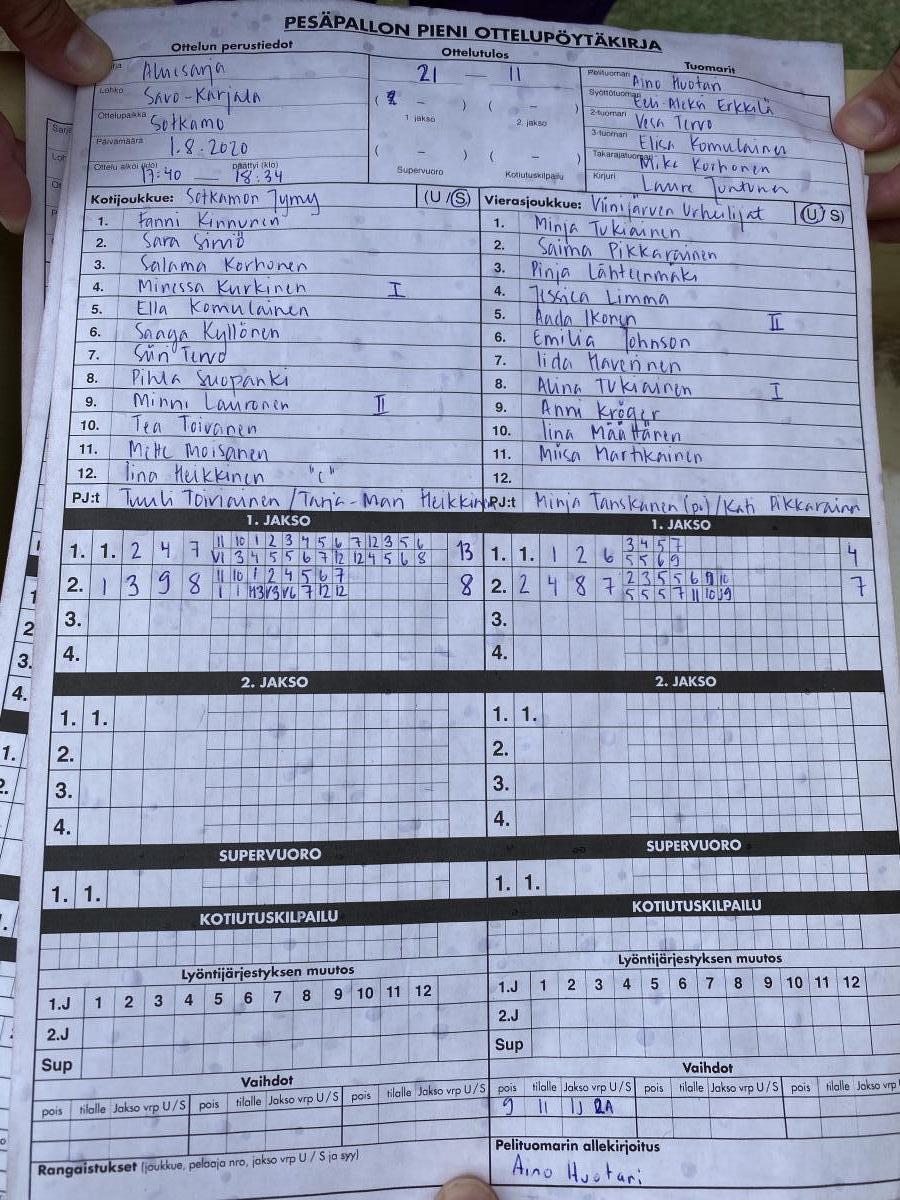 PESÄPALLON PIENI OTTELUPÖYTÄKIRJA
Ottelun perustiedot
Aluesarja
Lohko Savo-Karjala
Ottelupaikka Sotkamo
Päivämäärä 1.8.2020
Ottelu alkoi (klo) 17:40 — päättyi (klo) 18:34
Ottelutulos
21 — 11
( – ) ( – )
1. jakso 2. jakso
( – ) ( – )
Supervuoro Kotiutuskilpailu
Tuomarit
Pelituomari Aino Huotari
Syöttötuomari Eeli-Aleksi Erkkilä
2-tuomari Vesa Tervo
3-tuomari Elisa Komulainen
Takarajatuomari Mika Korhonen
Kirjuri Laura Juntunen
Kotijoukkue: Sotkamon Jymy (U/S)
1. Fanni Kinnunen
2. Sara Sirviö
3. Salama Korhonen
4. Minessa Kurkinen I
5. Ella Komulainen
6. Saaga Kyllönen
7. Siiri Tervo
8. Pihla Suopanki
9. Minni Lauronen II
10. Tea Toivanen
11. Mette Moisanen
12. Iina Heikkinen "c"
PJ:t Tuuli Toiviainen / Tarja-Mari Heikkinen
Vierasjoukkue: Viinijärven Urheilijat (U/S)
1. Minja Tukiainen
2. Saima Pikkarainen
3. Pinja Lähteenmäki
4. Jessica Limma
5. Aada Ikonen II
6. Emilia Johnson
7. Iida Haverinen
8. Alina Tukiainen I
9. Anni Kröger
10. Iina Määttänen
11. Miisa Martikainen
12.
PJ:t Minja Tanskanen (pv) / Kati Pikkarainen
1. JAKSO
1. 1. 2 4 7 11 10 1 2 3 4 5 6 7 12 3 5 6 13
VI 3 4 5 5 6 7 12 12 4 5 6 8
2. 1 3 9 8 11 10 1 2 4 5 6 7 8
3.
4.
1. JAKSO
1. 1. 1 2 6 3 4 5 7 4
5 5 6 9
2. 2 4 8 7 2 3 5 5 6 9 10 7
5 5 5 7 11 10 9
3.
4.
2. JAKSO
1. 1.
2.
3.
4.
2. JAKSO
1. 1.
2.
3.
4.
SUPERVUORO
1. 1.
SUPERVUORO
1. 1.
KOTIUTUSKILPAILU
KOTIUTUSKILPAILU
Lyöntijärjestyksen muutos
1.J 1 2 3 4 5 6 7 8 9 10 11 12
2.J
Sup
Lyöntijärjestyksen muutos
1.J 1 2 3 4 5 6 7 8 9 10 11 12
2.J
Sup
Vaihdot
pois tilalle Jakso vrp U/S pois tilalle Jakso vrp U/S pois tilalle Jakso vrp U/S
Vaihdot
pois tilalle Jakso vrp U/S pois tilalle Jakso vrp U/S pois tilalle Jakso vrp
9 11 1J 2A
Rangaistukset (joukkue, pelaaja nro, jakso vrp U / S ja syy)
Pelituomarin allekirjoitus
Aino Huotari